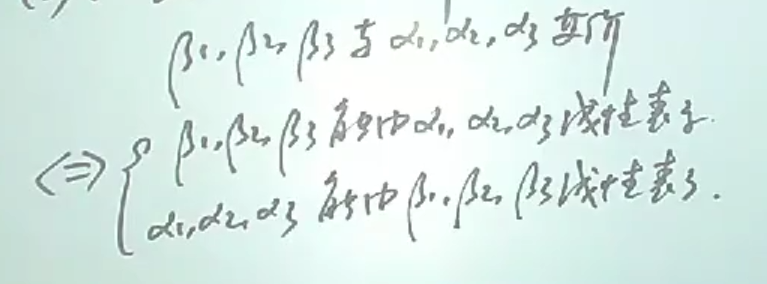 β1, β2, β3 与 α1, α2, α3 等价
⇔ { β1, β2, β3 能由 α1, α2, α3 线性表示.
α1, α2, α3 能由 β1, β2, β3 线性表示.